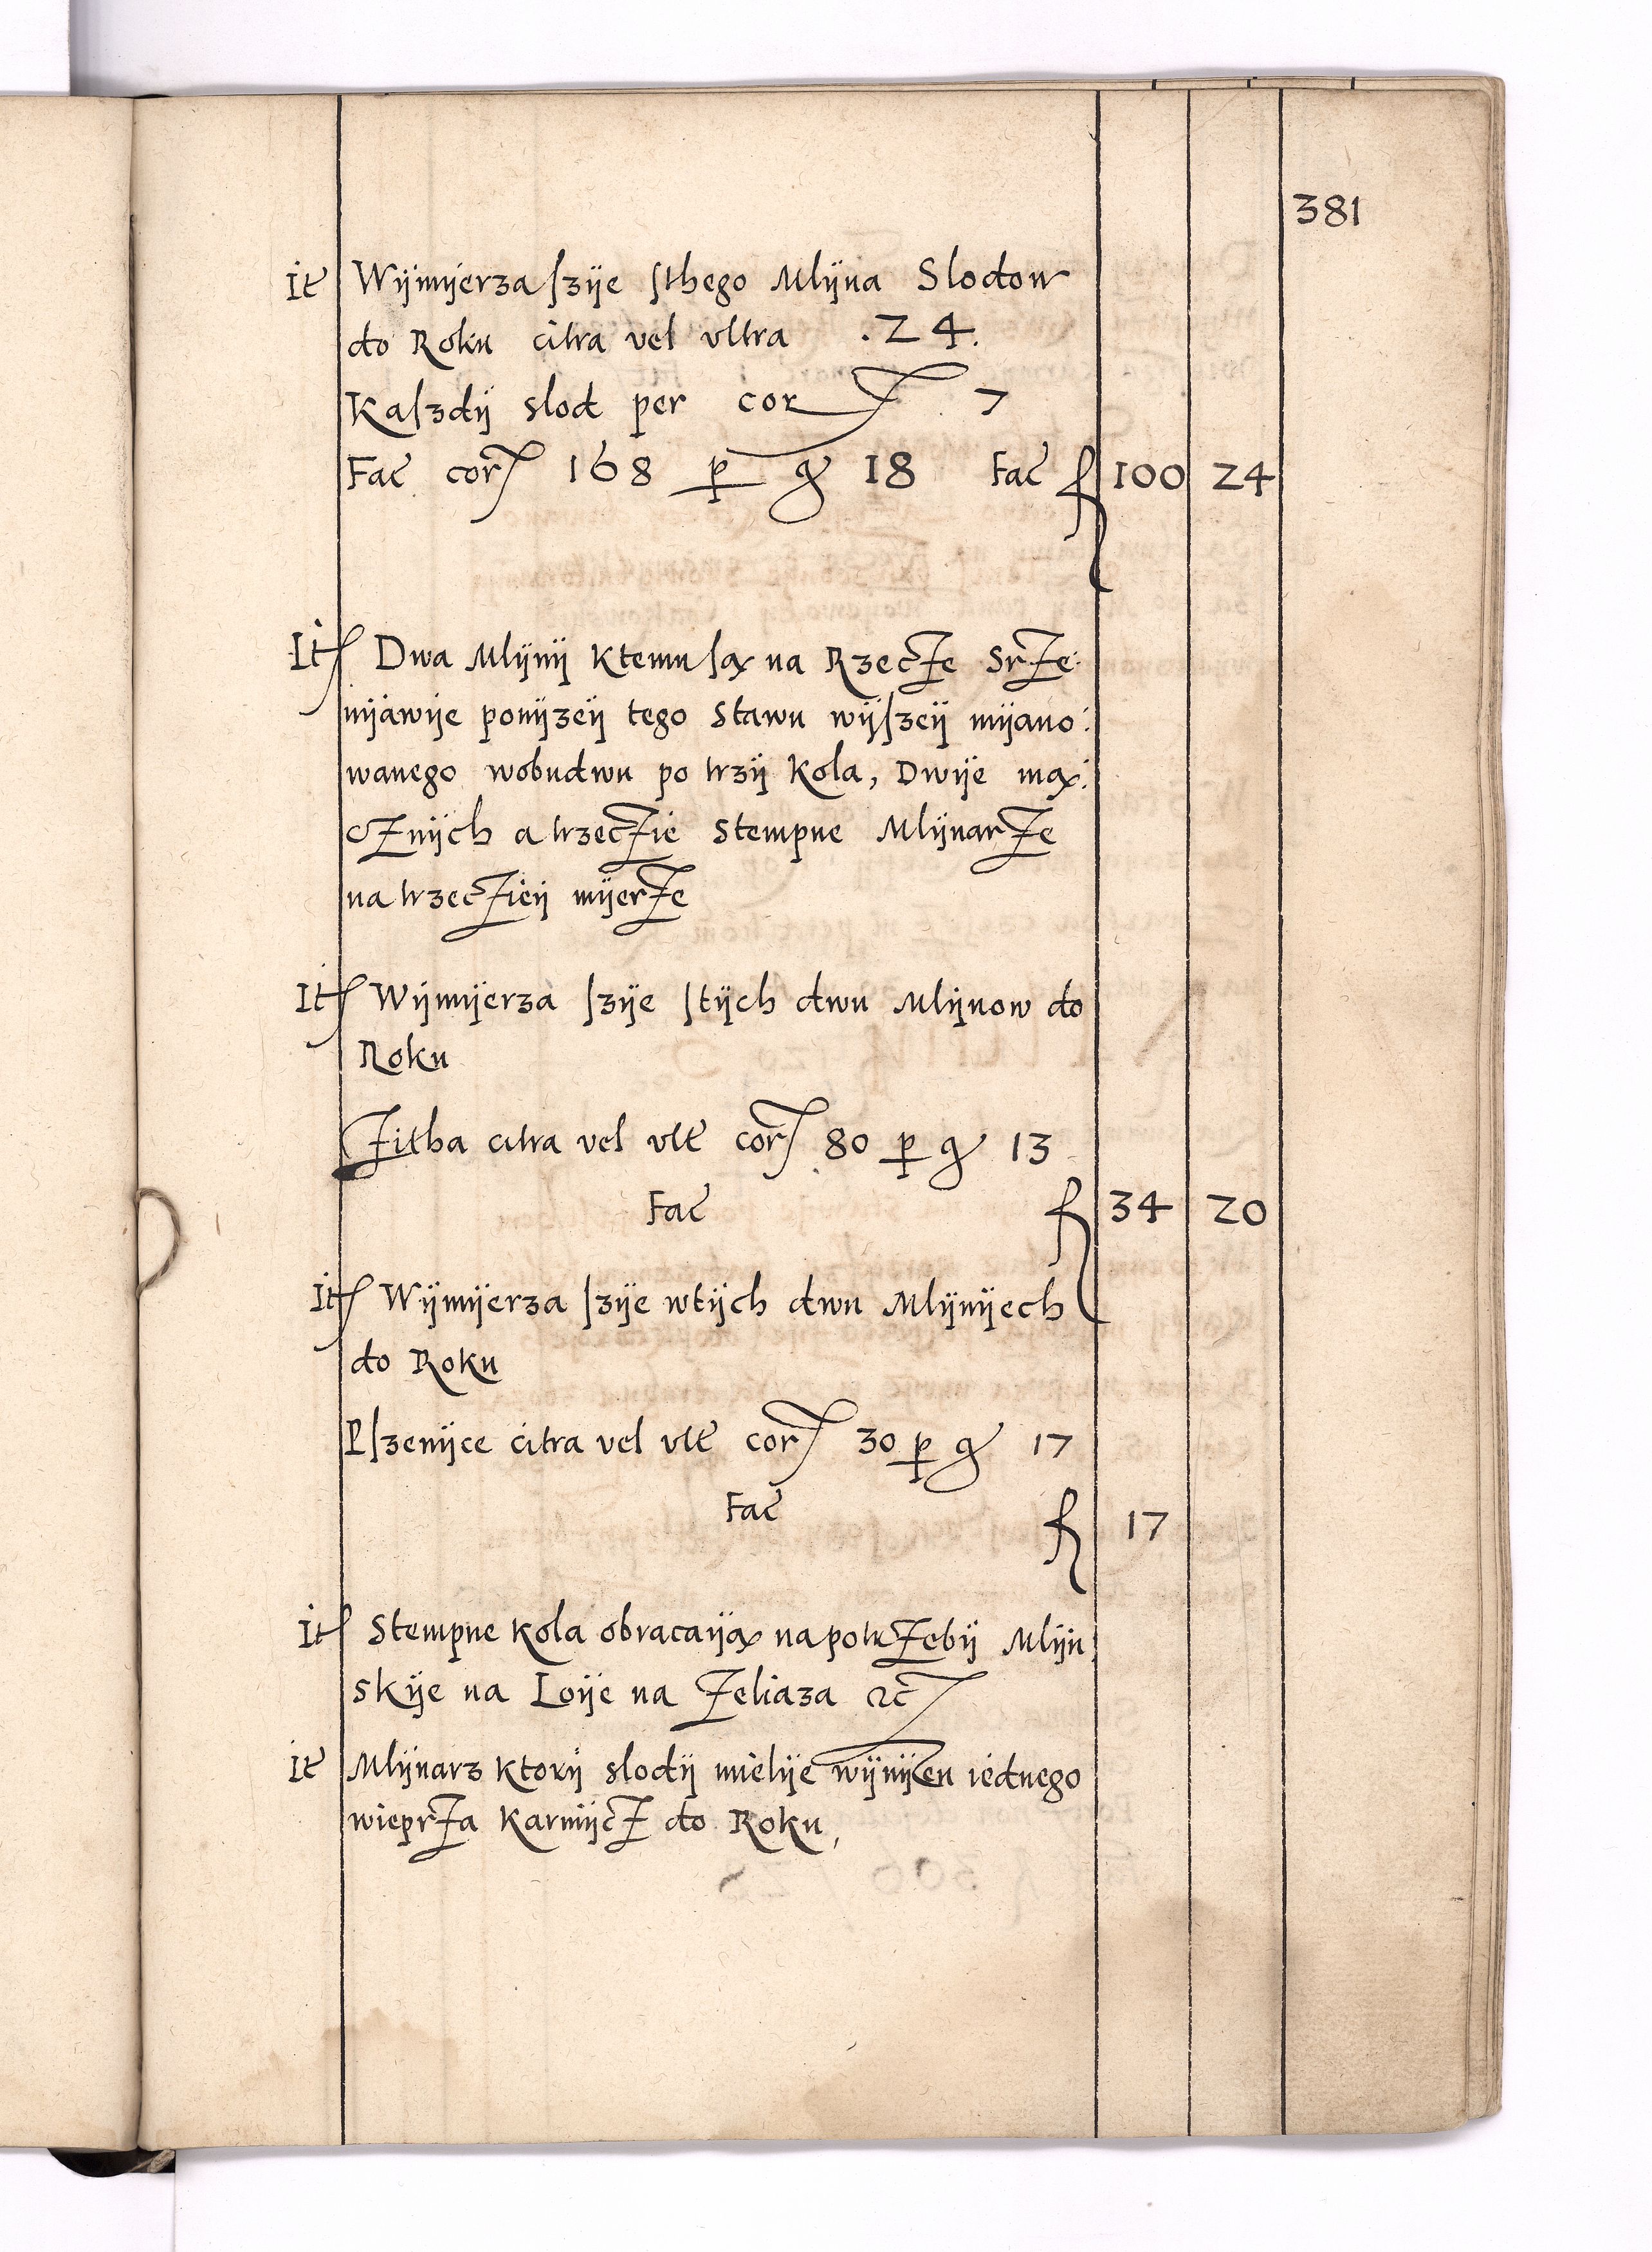 381
It Wÿmÿerza ſzÿe ſthego Mlÿna Slodow
do Roku citra vel vltra .24.
Kaſzdÿ slod per cor 7
Fac cor 168 p g 18 Fac f 100 24
It Dwa Mlÿnÿ Ktemu ſą na Rzecze Srze:
nÿawÿe ponÿzeÿ tego Stawu wÿſzeÿ mÿano:
wanego wobudwu po trzÿ Kola, Dwÿe mą:
cznÿch a trzeczie Stempne Mlÿnarze
na trzeczieÿ mÿerze
It Wÿmÿerza ſzÿe ſtÿch dwu Mlÿnow do
Roku
Zitha citra vel vlt cor 80 p g 13
Fac f 34 20
It Wÿmÿerza ſzÿe wtÿch dwu Mlÿnÿech
do Roku
Pſzenÿce citra vel vlt cor 30 p g 17
Fac f 17
It Stempne Kola obracaÿą na potrzebÿ Mlÿn
skÿe na Loÿe na Zeliaza etc
It Mlÿnarz Ktorÿ slodÿ mielÿe wÿnÿen iednego
wieprza Karmÿcz do Roku,